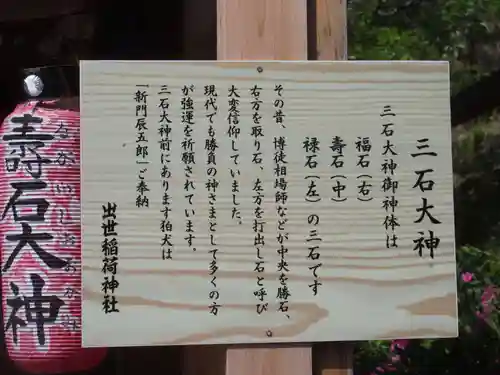 三石大神
三石大神御神体は
福石(右)
壽石(中)
禄石(左)の三石です
その昔、博徒相場師などが中央を勝石、
右方を取り石、左方を打出し石と呼び
大変信仰していました。
現代でも勝負の神さまとして多くの方
が強運を祈願されています。
三石大神前にあります狛犬は
「新門辰五郎」ご奉納
出世稲荷神社
壽石大神